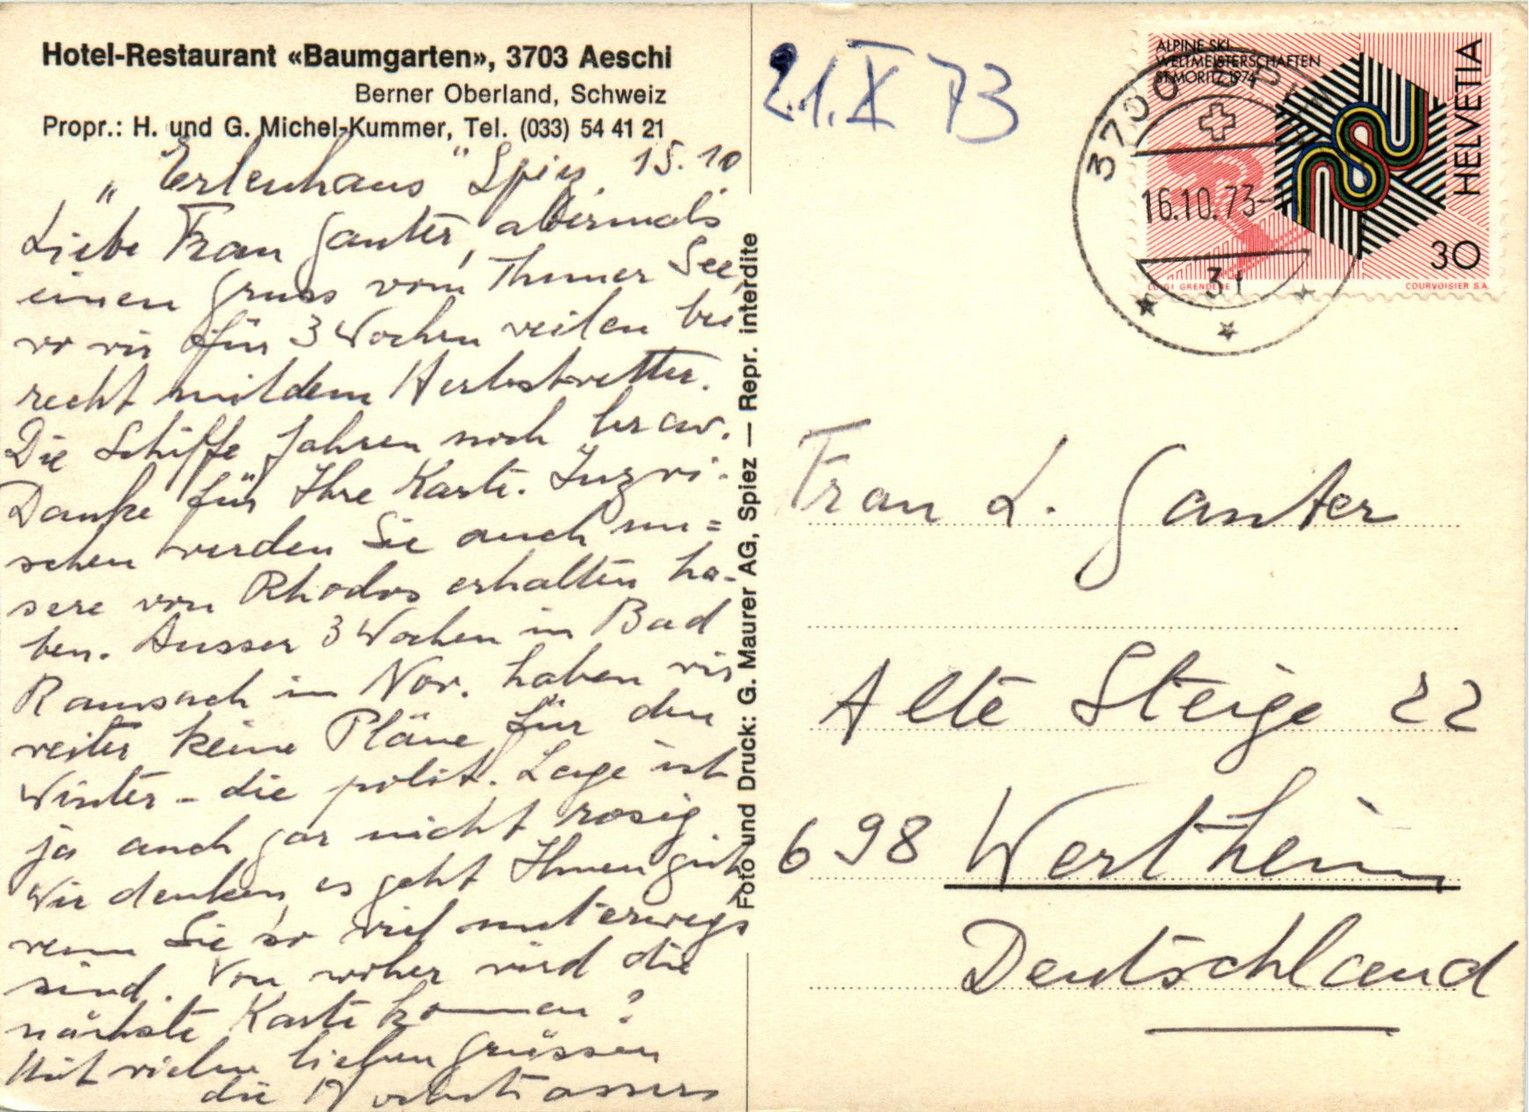 Hotel-Restaurant «Baumgarten», 3703 Aeschi
Berner Oberland, Schweiz
Propr.: H. und G. Michel-Kummer, Tel. (033) 54 41 21
"Erlenhaus" Spiez, 15.10
Liebe Frau Ganter, abermals
einen Gruss vom Thuner See,
wo wir für 3 Wochen weilen bei
recht mildem Herbstwetter.
Die Schiffe fahren noch brav.
Danke für Ihre Karte. Inzwi-
schen werden Sie auch un=
sere von Rhodos erhalten ha-
ben. Ausser 3 Wochen in Bad
Ramsach im Nov. haben wir
weiter keine Pläne für den
Winter - die polit. Lage ist
ja auch gar nicht rosig.
Wir denken, es geht Ihnen gut
wenn Sie so viel unterwegs
sind. Von woher wird die
nächste Karte kommen?
Mit vielen lieben Grüssen
die
Foto und Druck: G. Maurer AG, Spiez — Repr. interdite
21.X 73
ALPINE SKI
WELTMEISTERSCHAFTEN
ST. MORITZ 1974
HELVETIA
30
LUIGI GRENDENE
COURVOISIER S.A.
3700 SPIEZ
16.10.73-
Frau L. Ganter
Alte Steige 22
698 Wertheim
Deutschland